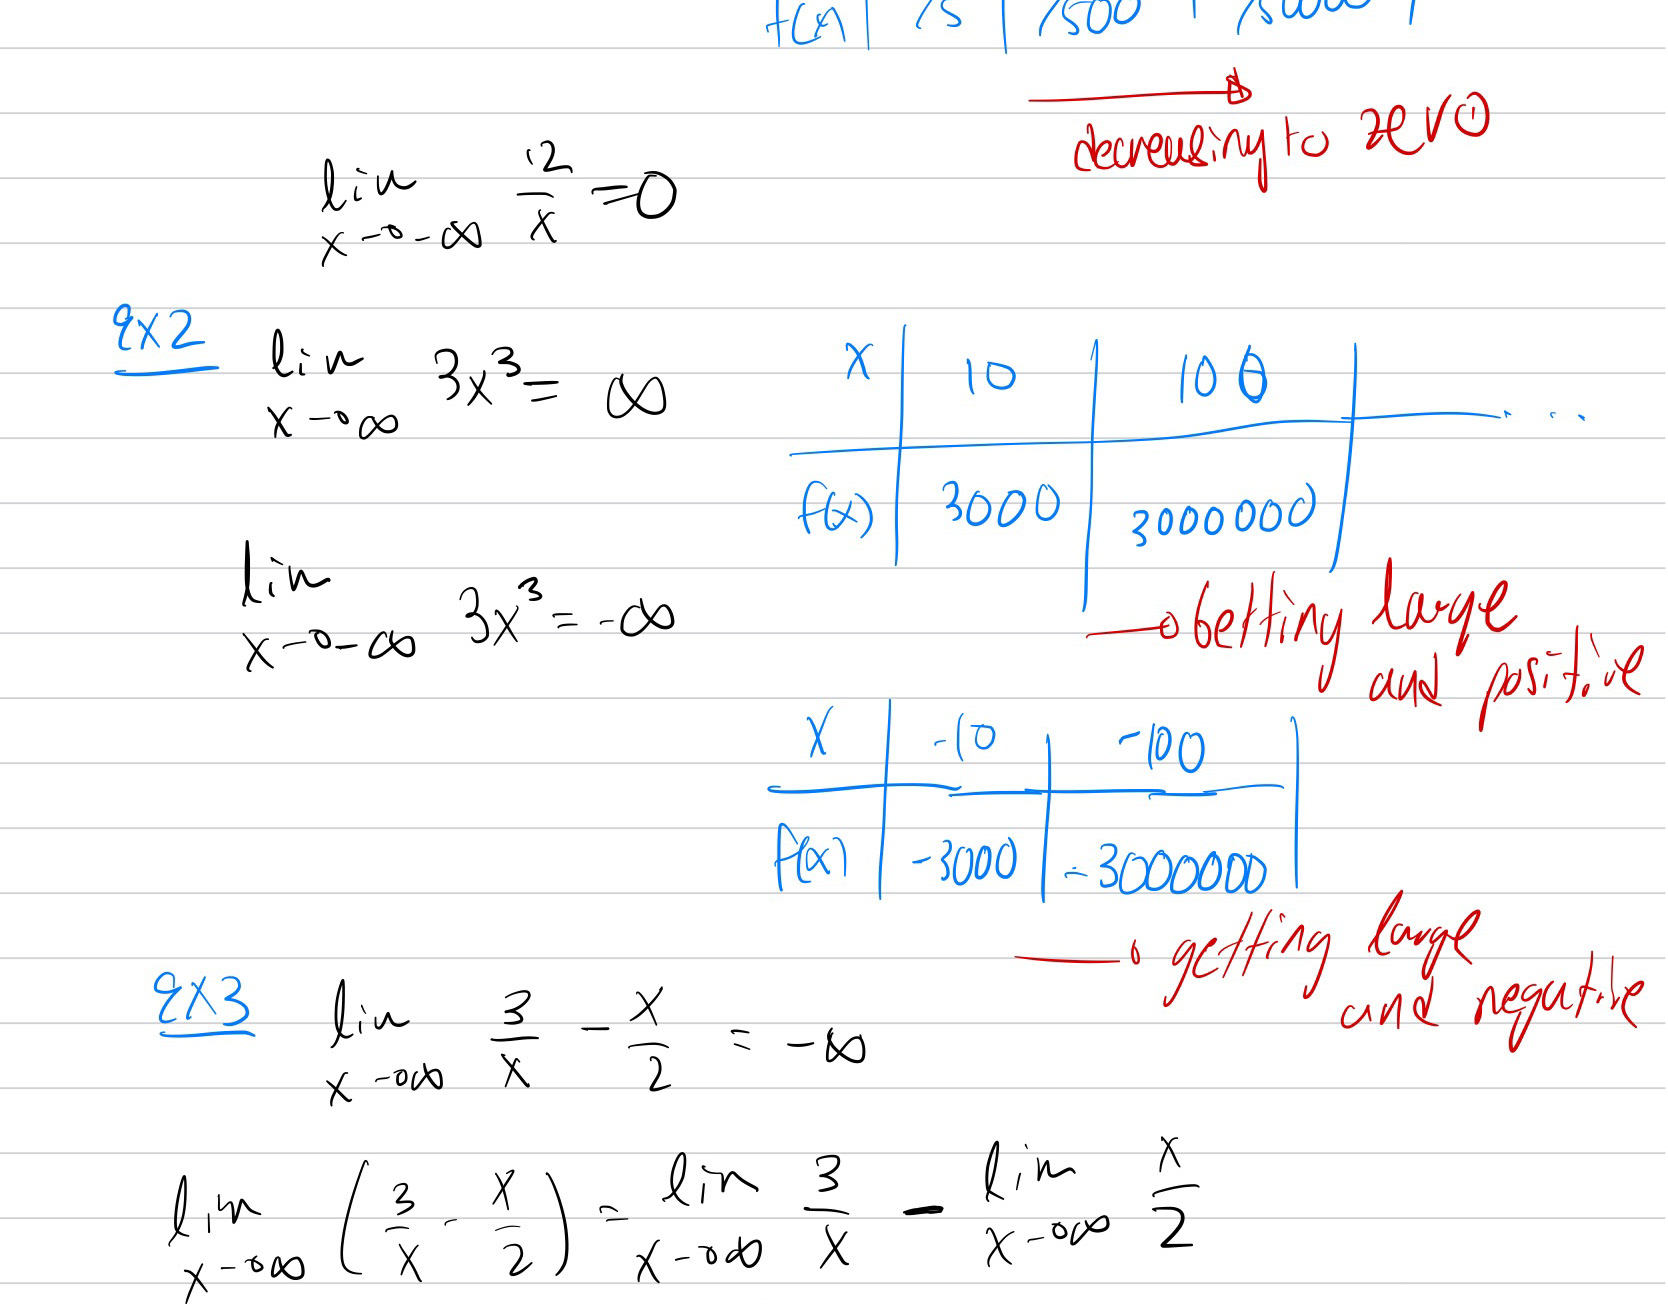 f(x) | 15 | 1500 |
decreasing to zero
lim x→-∞ 12/x = 0
ex2 lim x→∞ 3x³ = ∞
x | 10 | 100 | ...
f(x) | 3000 | 3000000 |
lim x→-∞ 3x³ = -∞
→ Getting large
and positive
x | -10 | -100 |
f(x) | -3000 | -3000000 |
→ getting large
and negative
ex3 lim x→∞ 3/x - x/2 = -∞
lim x→∞ (3/x - x/2) = lim x→∞ 3/x - lim x→∞ x/2